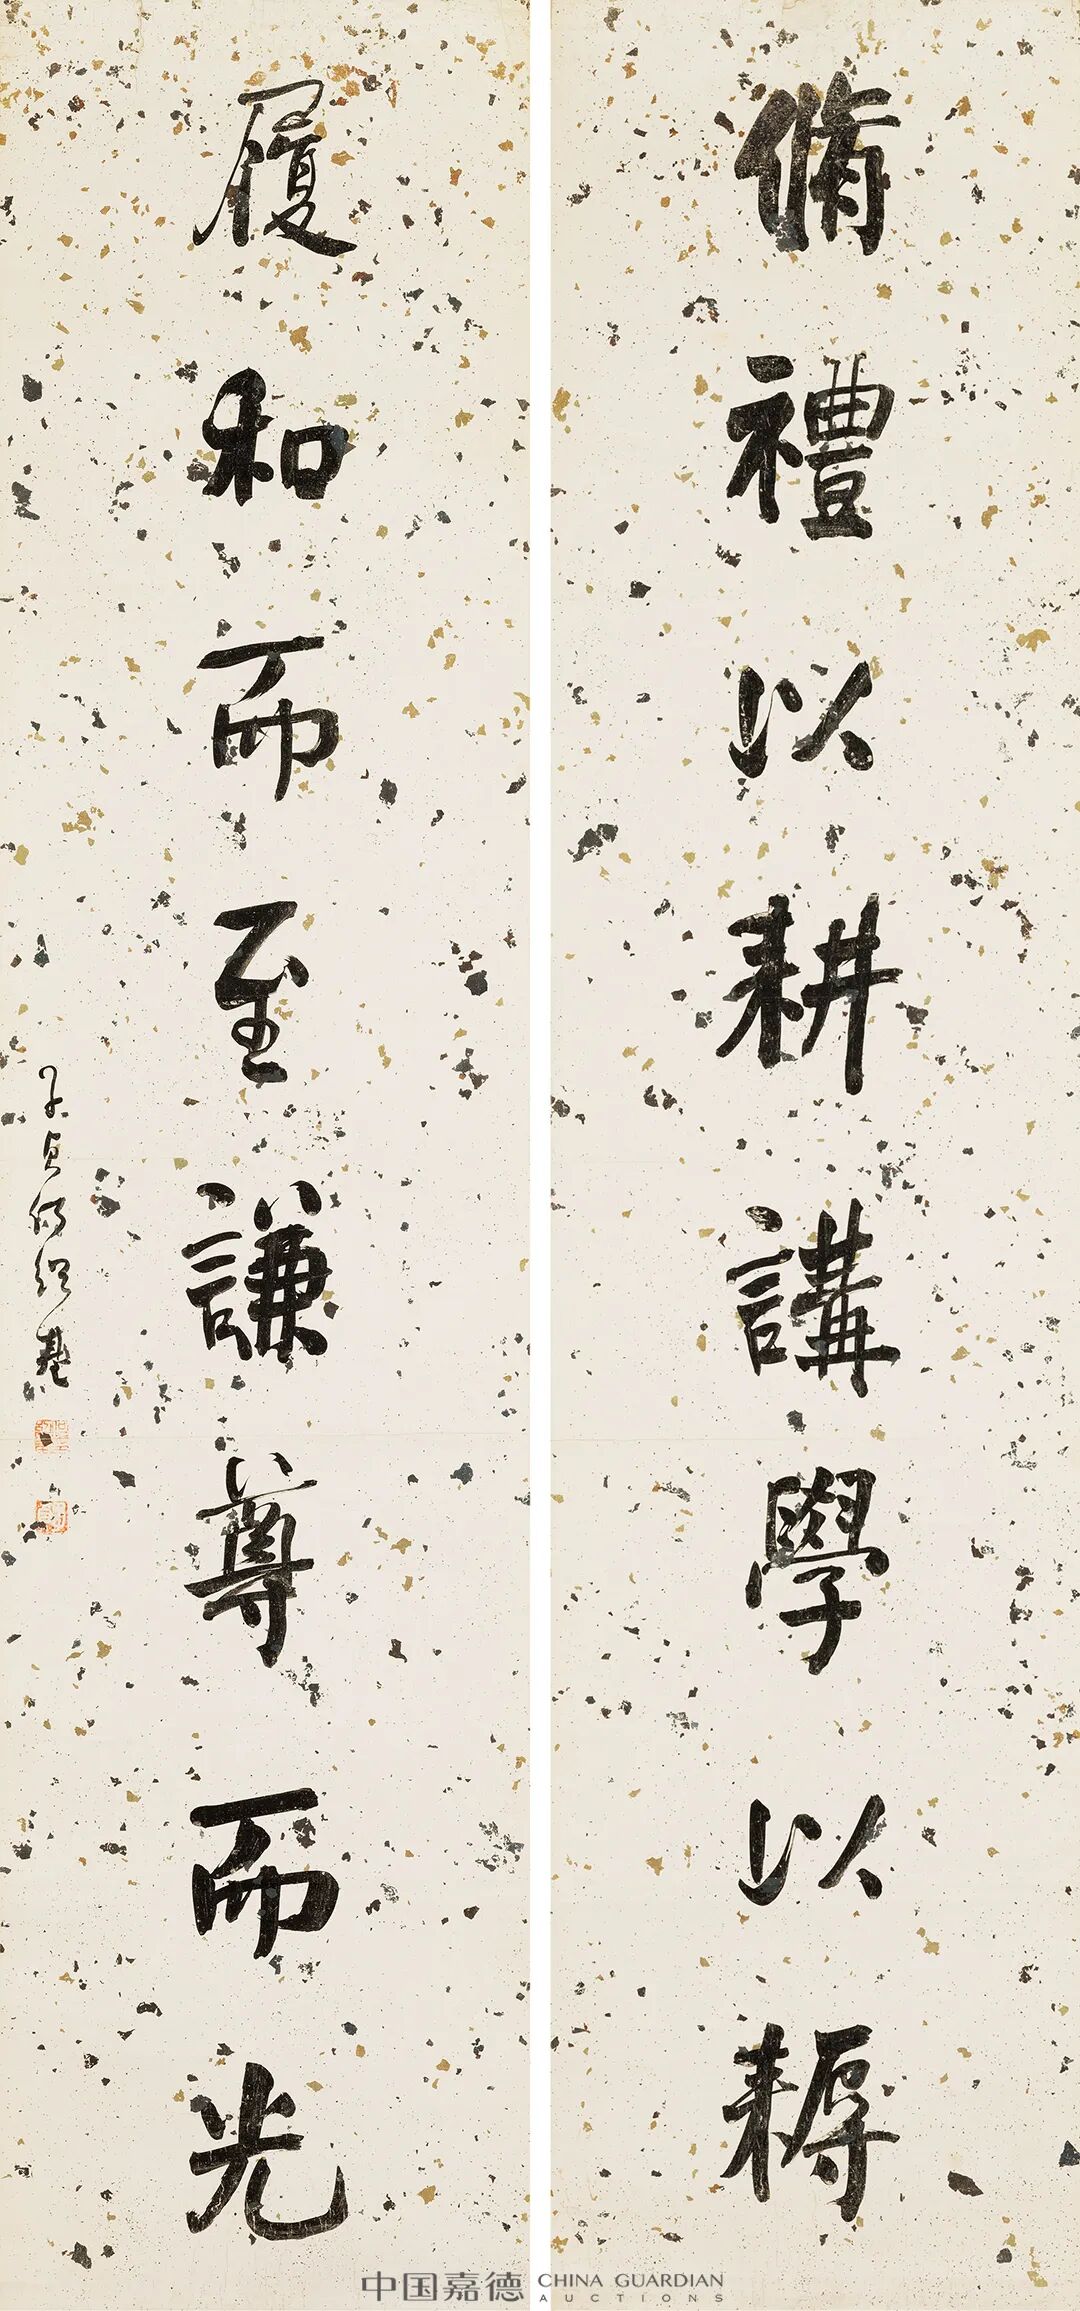 脩禮以耕講學以耨
履和而至謙尊而光
子貞何紹基
中国嘉德 CHINA GUARDIAN AUCTIONS